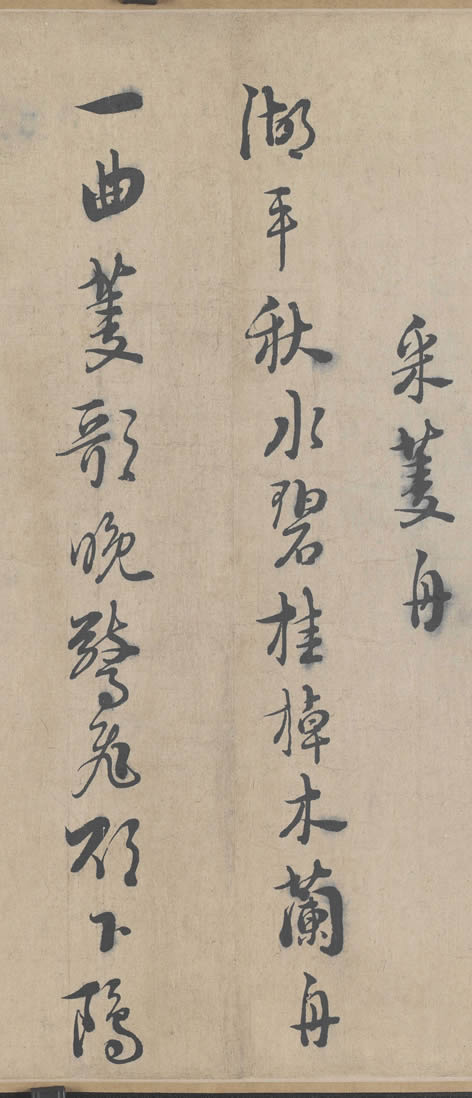 采菱舟
湖平秋水碧桂棹木蘭舟
一曲菱歌晚驚飛欲下鷗